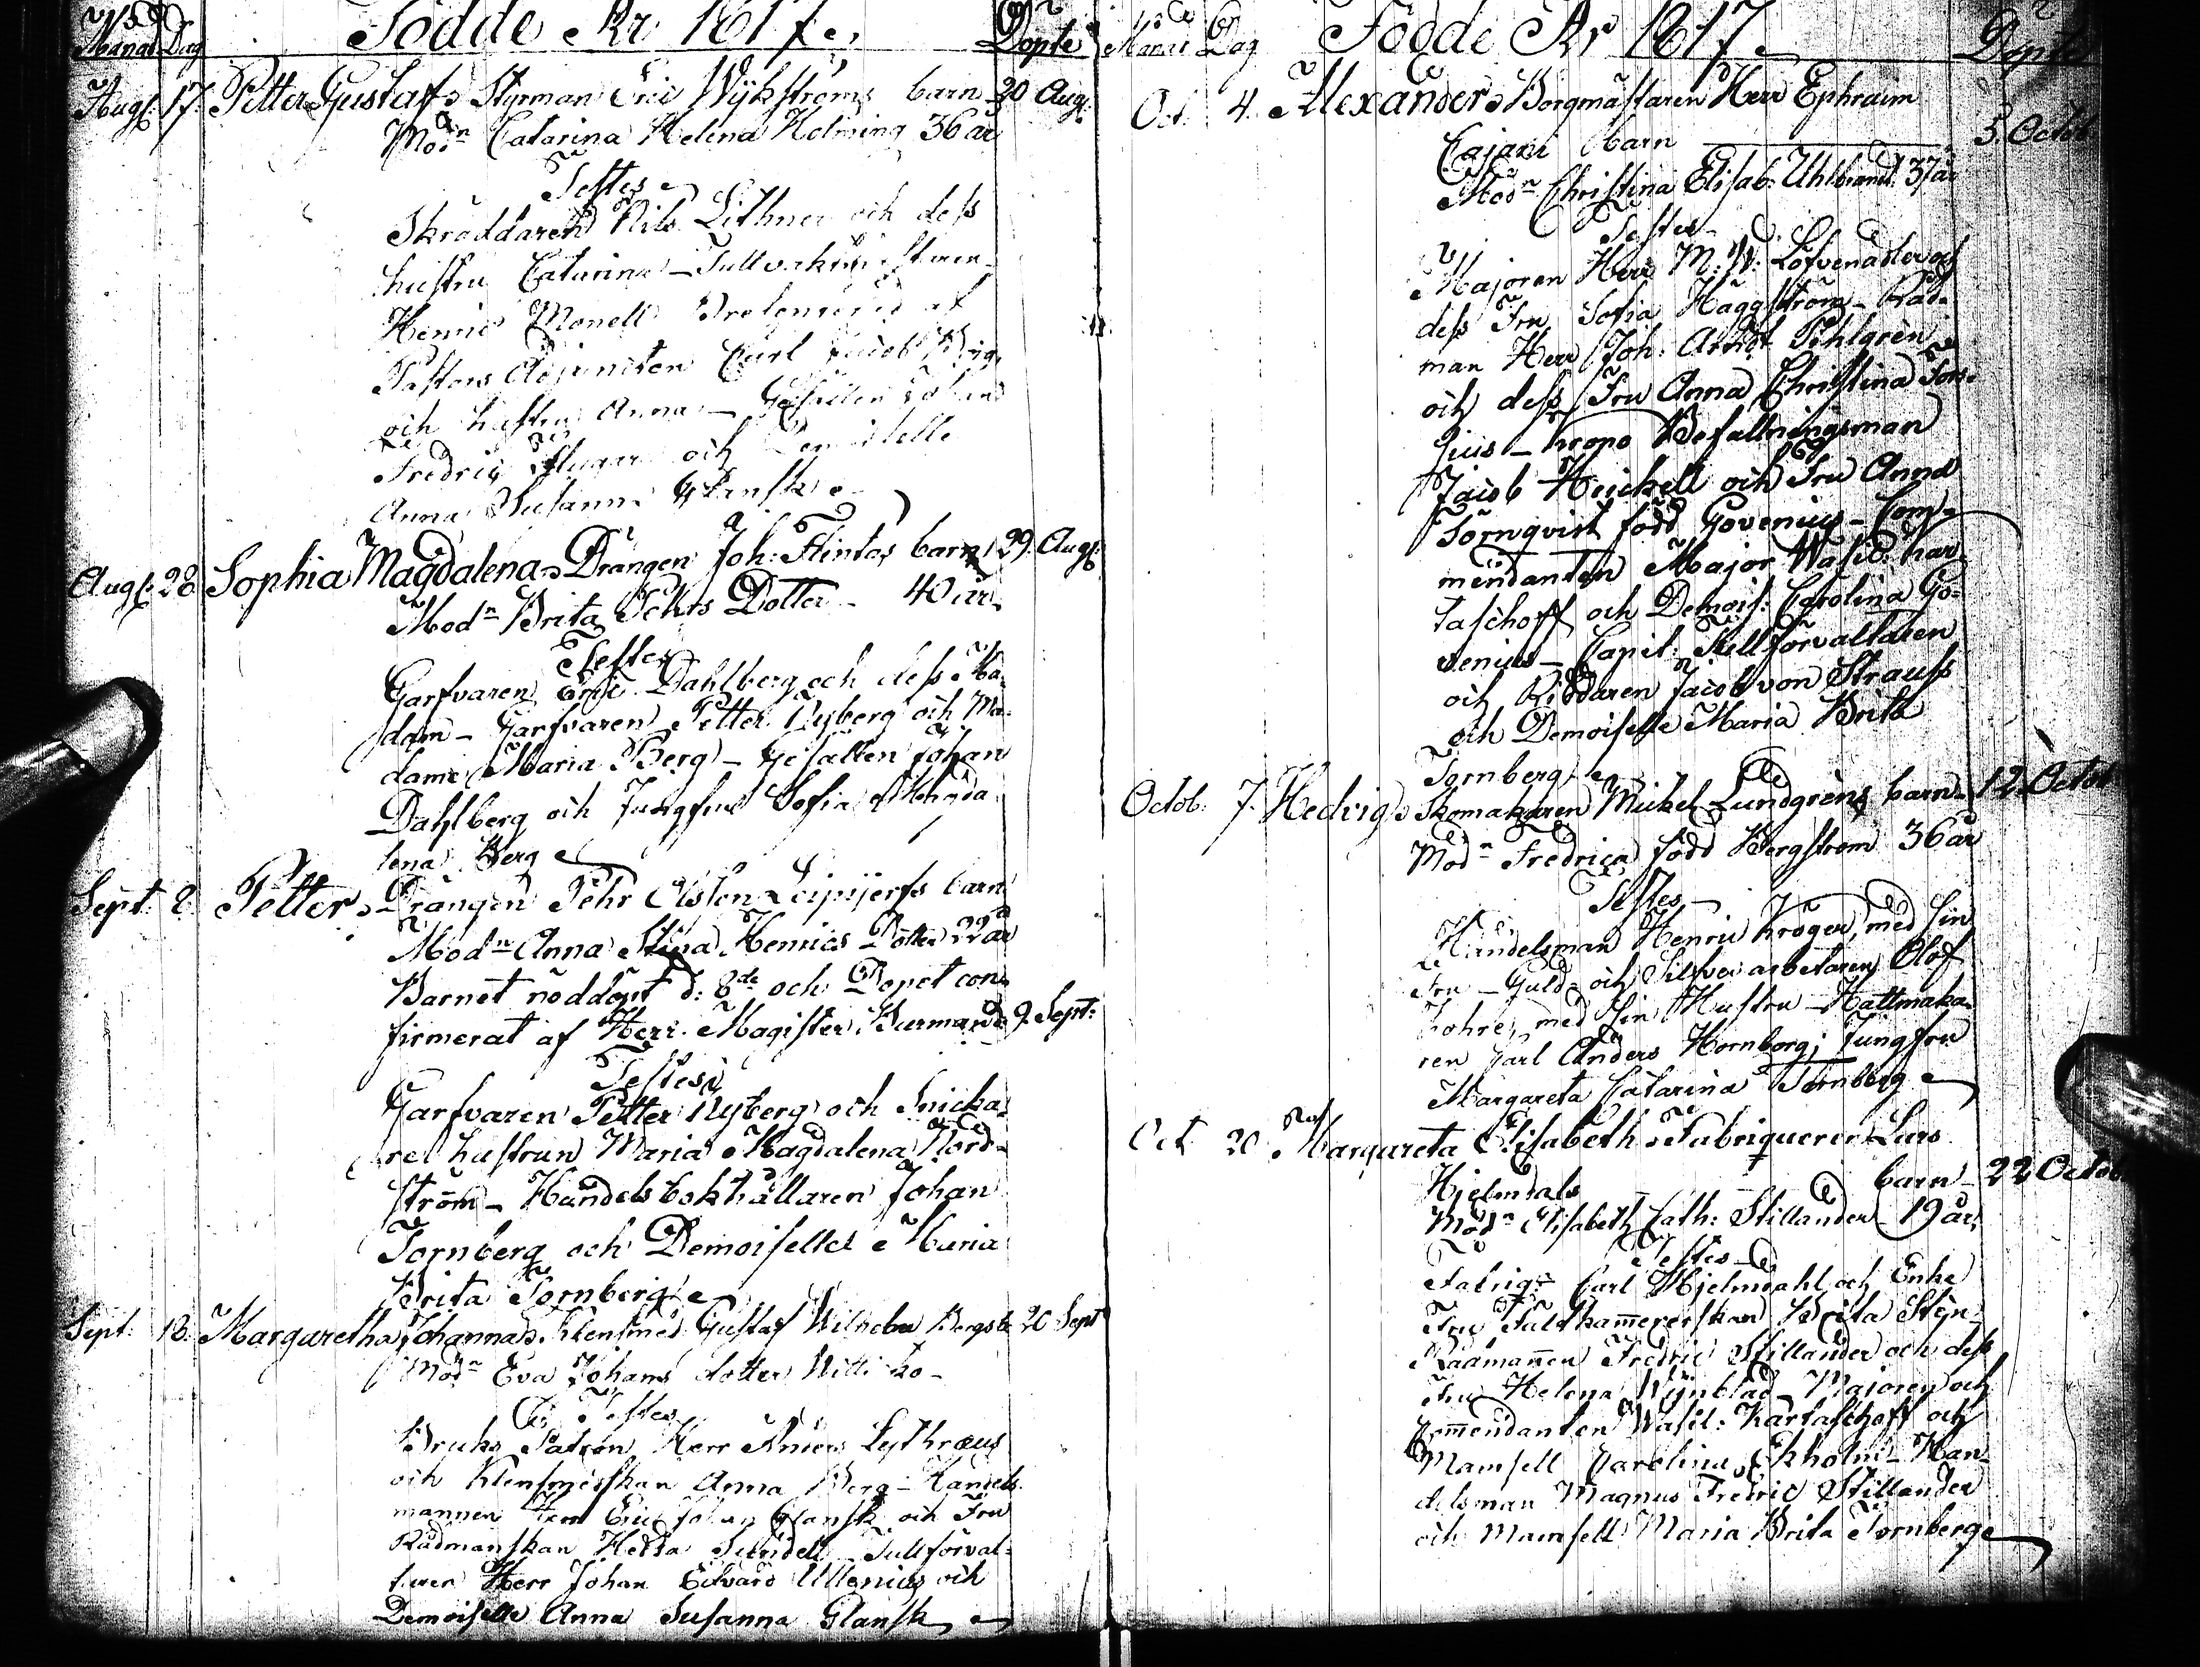 Månad Dag Födde År 1817. Döpte
Aug: 17. Petter Gustaf, Styrman Eric Wijkströms barn 20 Aug:
Modn Catarina Helena Holming 36 år
Testes
Skräddaren Nils Lithner och dess
hustru Catarina - Tullvaktmästaren
Henric Monell
Pastors Adjuncten Carl Jacob
och hustru Anna - Gesällen Johan
Fredric och Demoiselle
Anna Susanna Glansk
Aug: 28. Sophia Magdalena, Drängen Joh: Flintas barn 29. Aug:
Modn Brita Pehrs Dotter - 40 år.
Testes
Garfvaren Eric Dahlberg och dess Ma-
dam - Garfvaren Petter Nyberg och Ma-
dame Maria Berg - Gesällen Johan
Dahlberg och Jungfru Sofia Magda-
lena Berg
Sept: 8. Petter, Drängen Pehr Olsson barn
Modn Anna Stina Henrics Dotter 22 år
Barnet nöddöpt d: 8de och Dopet con-
firmerat af Herr Magister Burman 9. Sept:
Testes
Garfvaren Petter Nyberg och Snicka-
re hustrun Maria Magdalena Nord-
ström - Handelsbokhållaren Johan
Tornberg och Demoiselle Maria
Brita Tornberg
Sept: 18. Margaretha Johanna, Klensmed Gustaf Wilhelm Bergs b. 20 Sept
Modn Eva Johans dotter
Testes
Bruks Patron Herr Anders Lythræus
och Klensmedskan Anna Berg - Handels-
mannen Herr Eric Johan Glansk och Fru
Rådmanskan Hedda Sundell - Tullförval-
taren Herr Johan Edvard Ullenius och
Demoiselle Anna Susanna Glansk
Månad Dag Födde År 1817 Döpte
Oct. 4. Alexander, Borgmästaren Herr Ephraim
Cajani Barn 5. Octob
Modn Christina Elisab: Uhlbrandt 37 år
Testes
Majoren Herr M: W: Löfvenadler och
dess Fru Sofia Häggström - Råd-
man Herr Joh: Arndt Pihlgren
och dess Fru Anna Christina For-
gius - Krono Befallningsman
Jacob Heickell och Fru Anna
Törnqvist född Govenius - Com-
mendanten Major Wasil: Kar-
taschoff och Demois: Carolina Go-
venius - Capit: Tullförvaltaren
och Riddaren Jacob von Strauss
och Demoiselle Maria Brita
Tornberg
Octob: 7. Hedvig, Skomakaren Mickel Lundgrens barn 12 Octob
Modn Fredrica född Bergström 36 år
Testes
Handelsman Henric Kröger, med sin
Fru - Guld- och Silfver arbetaren Olof
Bohre, med sin Hustru - Hattmaka-
ren Carl Anders Hornborg; Jungfru
Margareta Catarina Tornberg
Oct 20 Margareta Elisabeth, Fabriqueren Lars
Hjelmdals barn 22 Octob
Modn Elisabeth Cath: Stillander 19 år,
Testes
Fabriqn Carl Hjelmdahl och Enke
Fru Fältkamererskan Brita Steen-
Rådmannen Fredric Stillander och dess
Fru Helena Wynblad - Majoren och
Commendanten Wasil: Kartaschoff och
Mamsell Carolina Ekholm - Han-
delsman Magnus Fredric Stillander
och Mamsell Maria Brita Tornberg